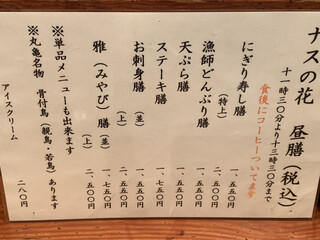 ナスの花　昼膳（税込）
十一時三〇分より十三時三〇分まで
食後にコーヒーついてます
にぎり寿し膳　一、五五〇円
（特上）　二、五五〇円
漁師どんぶり膳　一、五五〇円
天ぷら膳　一、五五〇円
ステーキ膳　一、七五〇円
お刺身膳（並）　一、五五〇円
（上）　二、五五〇円
雅（みやび）膳（並）　一、七五〇円
（上）　二、五〇〇円
※単品メニューも出来ます
※丸亀名物　骨付鳥（親鳥・若鳥）あります
アイスクリーム　二八〇円